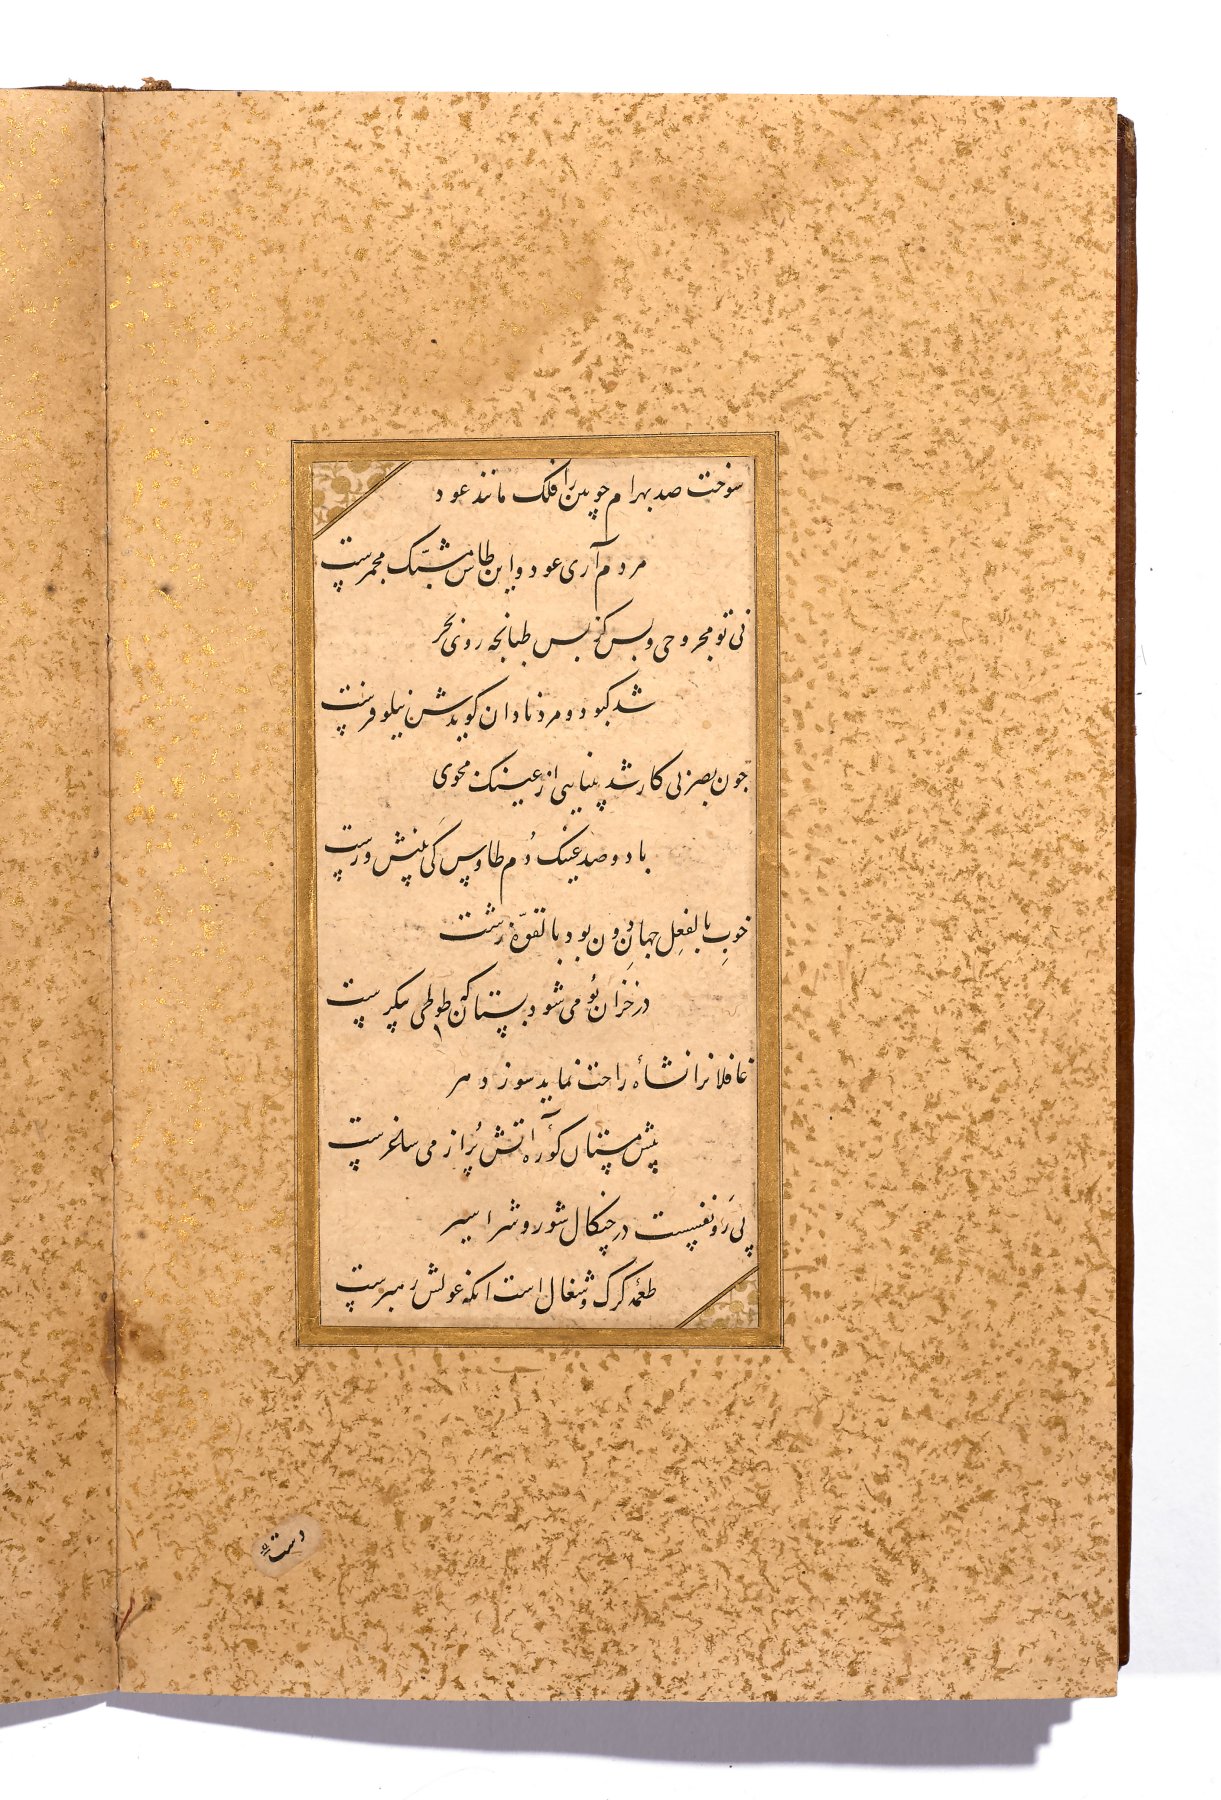 سوخت صد بهرام چوبین را فلک مانند عود
مردم آری عود و این طاس مشبّک مجمرست
نی تو مجروحی و بس کز بس طبانجه روی بحر
شد کبود و مرد نادان کویدش نیلوفرست
جون بصر بی کار شد بینایی از عینک مجوی
با دو صد عینک دُم طاوس کی بینش ورست
خوبِ بالفعلِ جهانِ دون بود بالقوّه زشت
در خزان بُو می شود بستان که طوطی پیکرست
غافلانرا نشاٴه راحت نماید سوز دهر
پیش مستان کوره آتش پُر از می ساغرست
پی رَو نفسست در چنکال شور و شر اسیر
طعمه کرک و شغال است انکه غولش رهبرست
دست